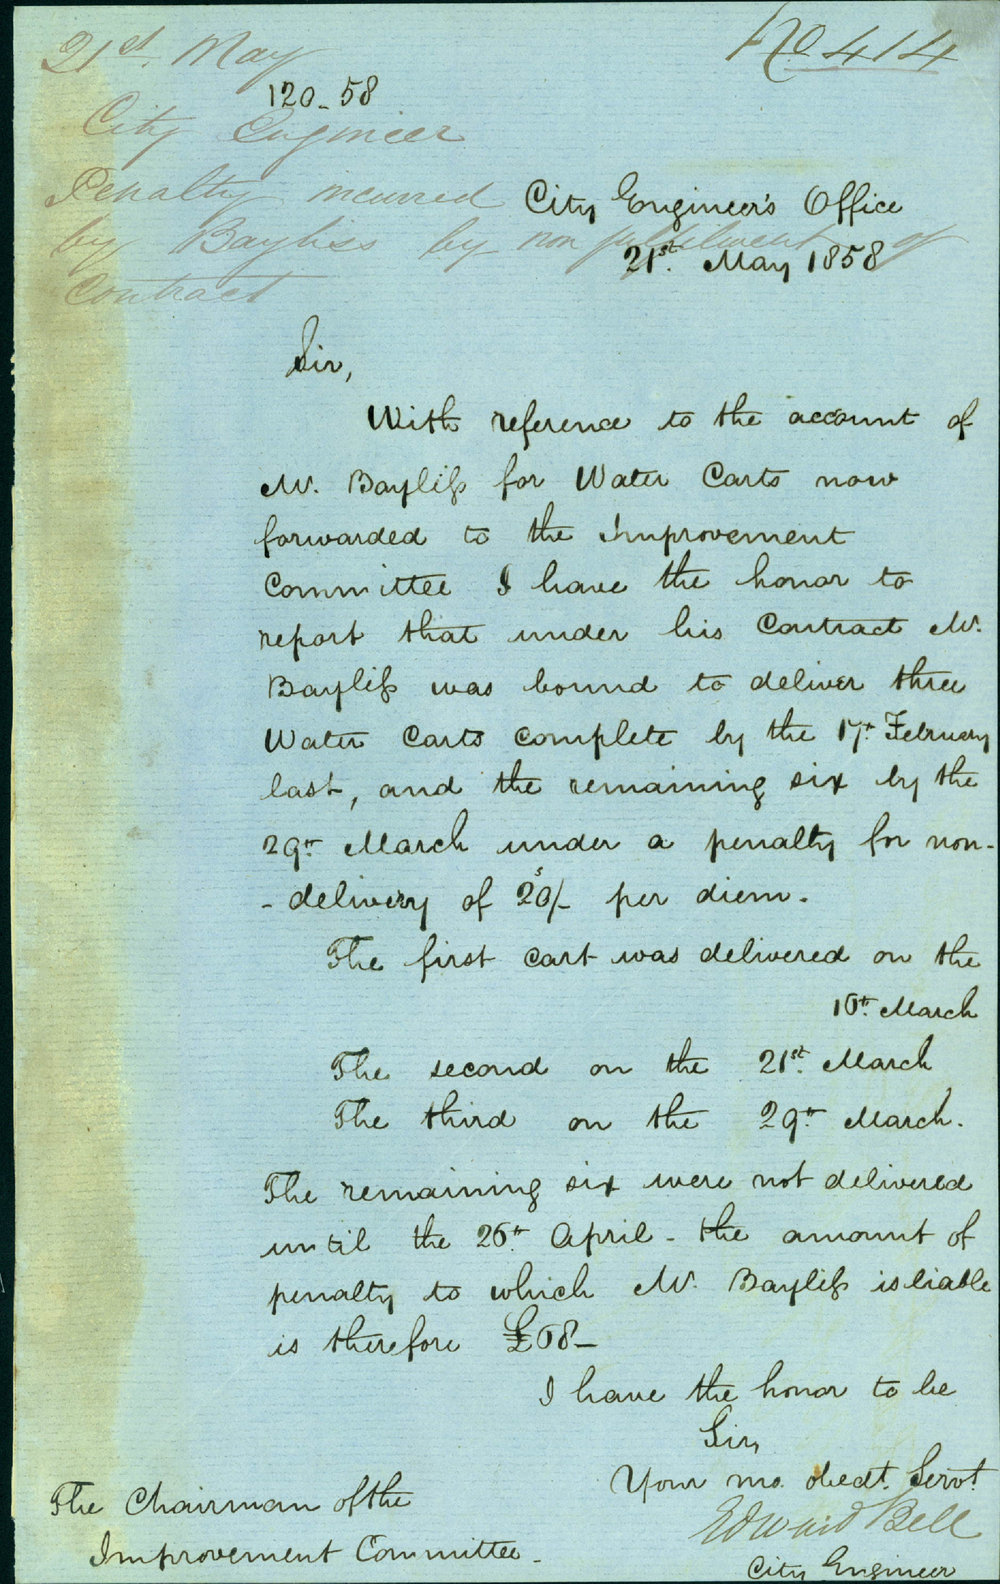 21st. May
No 414
120-58
City Engineer
Penalty incurred
by Bayliss by non fulfilment of
Contract
City Engineer's Office
21st. May 1858
Sir,
With reference to the account of
Mr. Bayliss for Water Carts now
forwarded to the Improvement
Committee I have the honor to
report that under his Contract Mr.
Bayliss was bound to deliver three
Water Carts complete by the 17th. February
last, and the remaining six by the
29th March under a penalty for non-
-delivery of 20s/- per diem.
The first cart was delivered on the
16th. March
The second on the 21st. March
The third on the 29th March.
The remaining six were not delivered
until the 26th. April - the amount of
penalty to which Mr. Bayliss is liable
is therefore £68-
I have the honor to be
Sir,
Your mo. obedt. Servt.
Edward Bell
City Engineer
The Chairman of the
Improvement Committee.